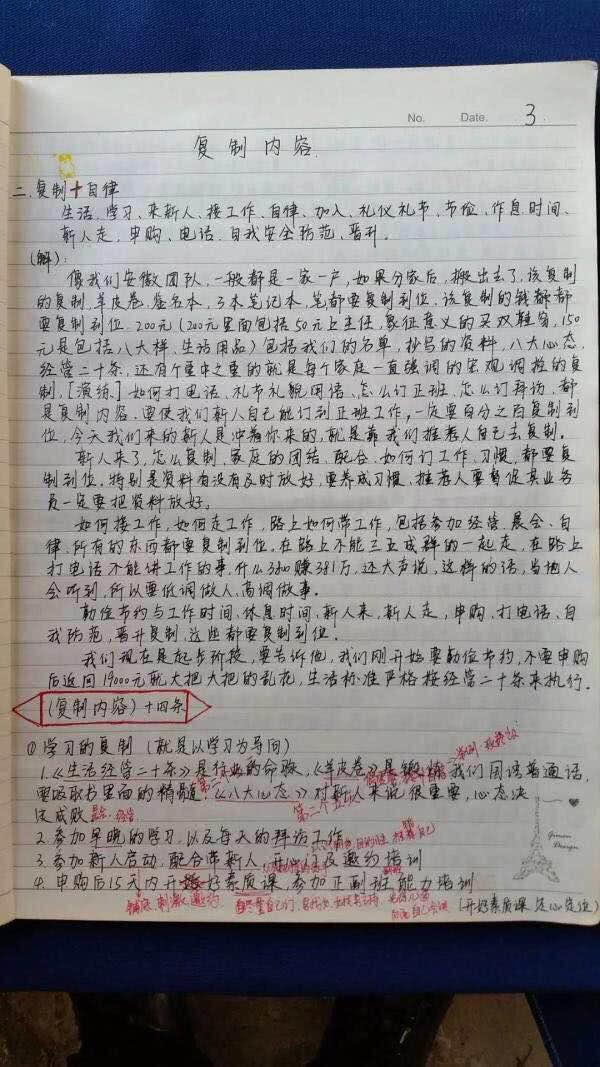 No.
Date.
3
复制内容
二.复制十自律
生活、学习、来新人、接工作、自律、加入、礼仪礼节、节俭、作息时间、
新人走、申购、电话、自我安全防范、晋升.
(解):
像我们安徽团队,一般都是一家一户,如果分家后,搬出去了,该复制
的复制,羊皮卷、签名本、3本笔记本,笔都要复制到位,该复制的钱都都
要复制到位.200元(200元里面包括50元上主任,象征意义的买双鞋穿,150
元是包括八大样、生活用品)包括我们的名单,抄写的资料,八大心态、
经营二十条,还有个重中之重的就是每个家庭一直强调的宏观调控的复
制,[演练]如何打电话、礼节礼貌用语、怎么订正班、怎么订拜访,都
是复制内容.要使我们新人自己能订到正班工作,一定要百分之百复制到
位,今天我们来的新人是冲着你来的,就是靠我们推荐人自己去复制。
新人来了,怎么复制,家庭的团结、配合、如何订工作、习惯,都要复
制到位.特别是资料有没有及时放好,要养成习惯,推荐人要督促其业务
员一定要把资料放好。
如何接工作,如何走工作,路上如何带工作,包括参加经营、晨会、自
律、所有的东西都要复制到位.在路上不能三五成群的一起走,在路上
打电话不能讲工作的事,什么3800赚381万,还大声说,这样的话,当地人
会听到,所以要低调做人,高调做事。
勤俭节约与工作时间、休息时间、新人来,新人走,申购,打电话、自
我防范、晋升复制,这些都要复制到位.
我们现在是起步阶段,要告诉他,我们刚开始要勤俭节约,不要申购
后返回19000元就大把大把的乱花,生活标准严格按经营二十条来执行.
(复制内容)十四条
①学习的复制(就是以学习为导向)
1.《生活经营二十条》是行业的命脉,《羊皮卷》是锻炼我们用读普通话,
要吸取书里面的精髓.《八大心态》对新人来说很重要,心态决
定成败
2.参加早晚的学习,以及每天的拜访工作
3.参加新人启动,配合带新人
及邀约培训
4.申购后15天内开好素质课,参加正副班能力培训
铺底、刺激、邀约
(开好素质课 定心定位)